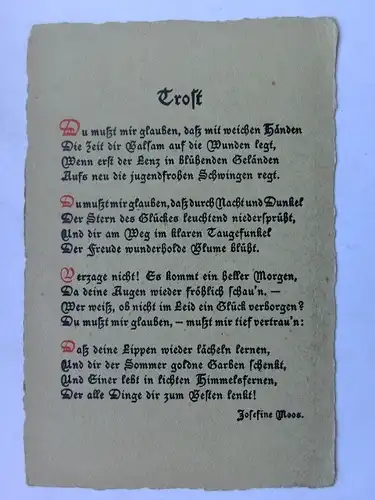 Trost
Du mußt mir glauben, daß mit weichen Händen
Die Zeit dir Balsam auf die Wunden legt,
Wenn erst der Lenz in blühenden Geländen
Aufs neu die jugendfrohen Schwingen regt.
Du mußt mir glauben, daß durch Nacht und Dunkel
Der Stern des Glückes leuchtend niedersprüht,
Und dir am Weg im klaren Taugefunkel
Der Freude wunderholde Blume blüht.
Verzage nicht! Es kommt ein heller Morgen,
Da deine Augen wieder fröhlich schau'n, —
Wer weiß, ob nicht im Leid ein Glück verborgen?
Du mußt mir glauben, — mußt mir tief vertrau'n:
Daß deine Lippen wieder lächeln lernen,
Und dir der Sommer goldne Garben schenkt,
Und Einer lebt in lichten Himmelsfernen,
Der alle Dinge dir zum Besten lenkt!
Josefine Moos.